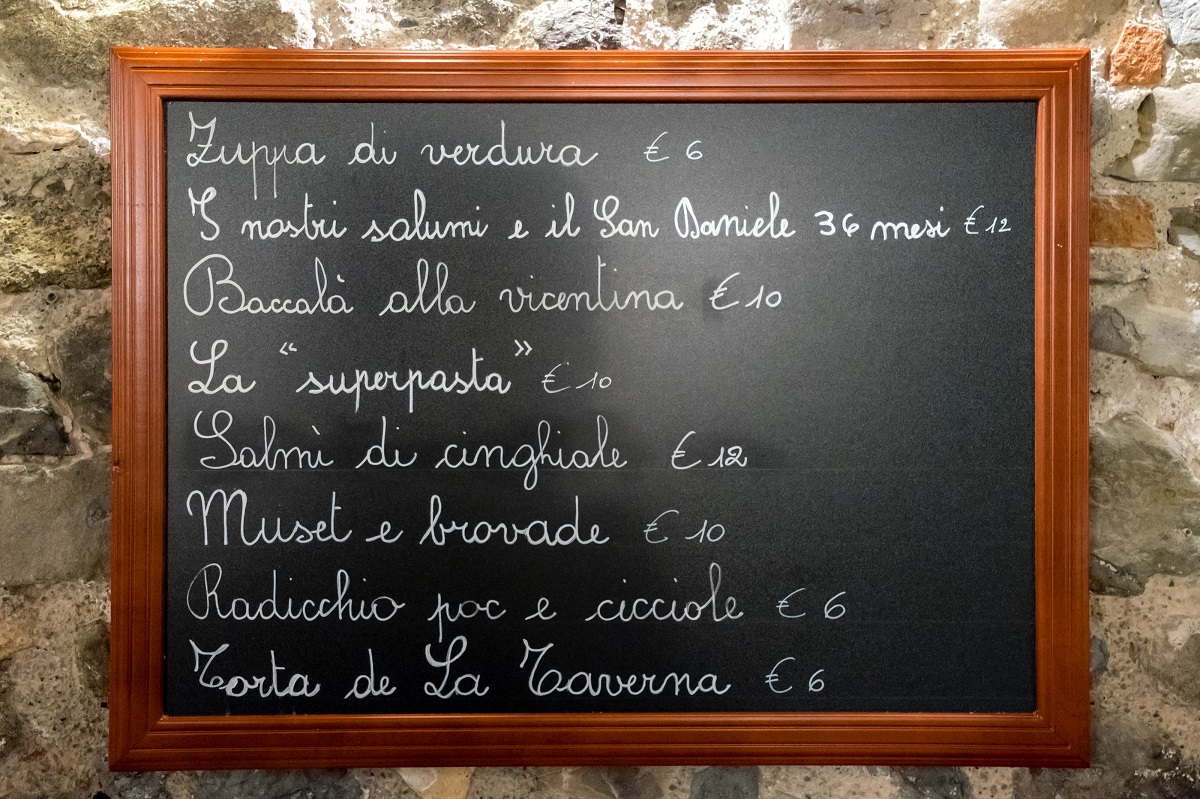 Zuppa di verdura € 6
I nostri salumi e il San Daniele 36 mesi € 12
Baccalà alla vicentina € 10
La "superpasta" € 10
Salmì di cinghiale € 12
Muset e brovade € 10
Radicchio poc e cicciole € 6
Torta de La Taverna € 6